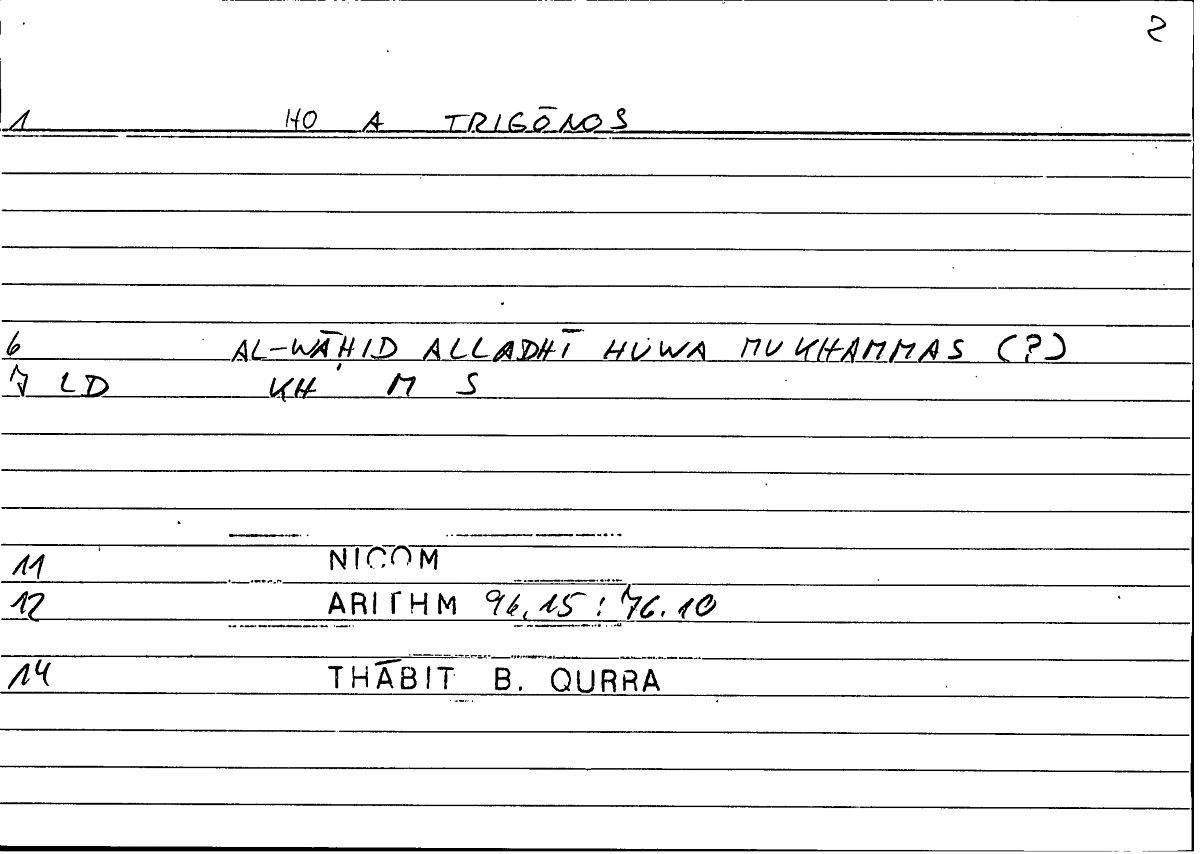 2
1 HO A TRIGŌNOS
6 AL-WĀḤID ALLADHĪ HUWA MUKHAMMAS (?)
7 LD KH M S
11 NICOM
12 ARITHM 96.15 : 76.10
14 THĀBIT B. QURRA